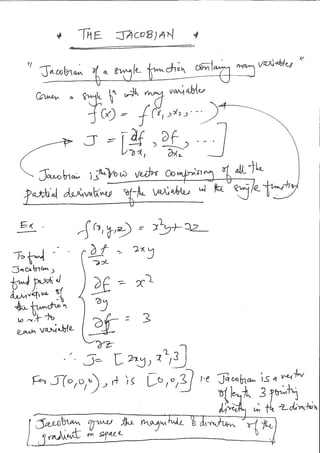 * THE JACOBIAN *
" Jacobian of a single function containing many variables "
Given a single fⁿ with many variables
f(x) = f(x₁, x₂, ...)
J = [∂f/∂x₁, ∂f/∂x₂, ...]
Jacobian is the row vector comprising of all the
partial derivatives of the variables in the single function
Ex. f(x,y,z) = x²y + 3z
To find
Jacobian,
find partial
derivative of
the function
w.r.t to
each variable
∂f/∂x = 2xy
∂f/∂y = x²
∂f/∂z = 3
∴ J = [2xy, x², 3]
For J(0,0,0), it is [0,0,3] i.e Jacobian is a vector
of length 3 pointing
directly in the z direction
Jacobian gives the magnitude & direction of the
gradient in space